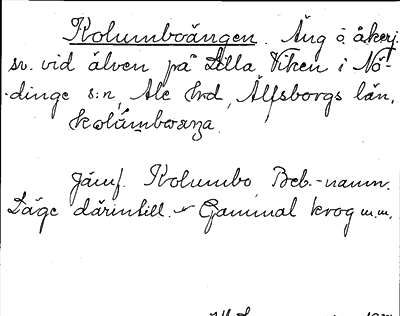 Kolumboängen. Äng o. åkerj.
sv. vid älven på Lilla Viken i Nö-
dinge s:n, Ale hrd, Älfsborgs län.
Jämf. Kolumbo, Beb.-namn.
Läge därintill. - Gammal krog m.m.